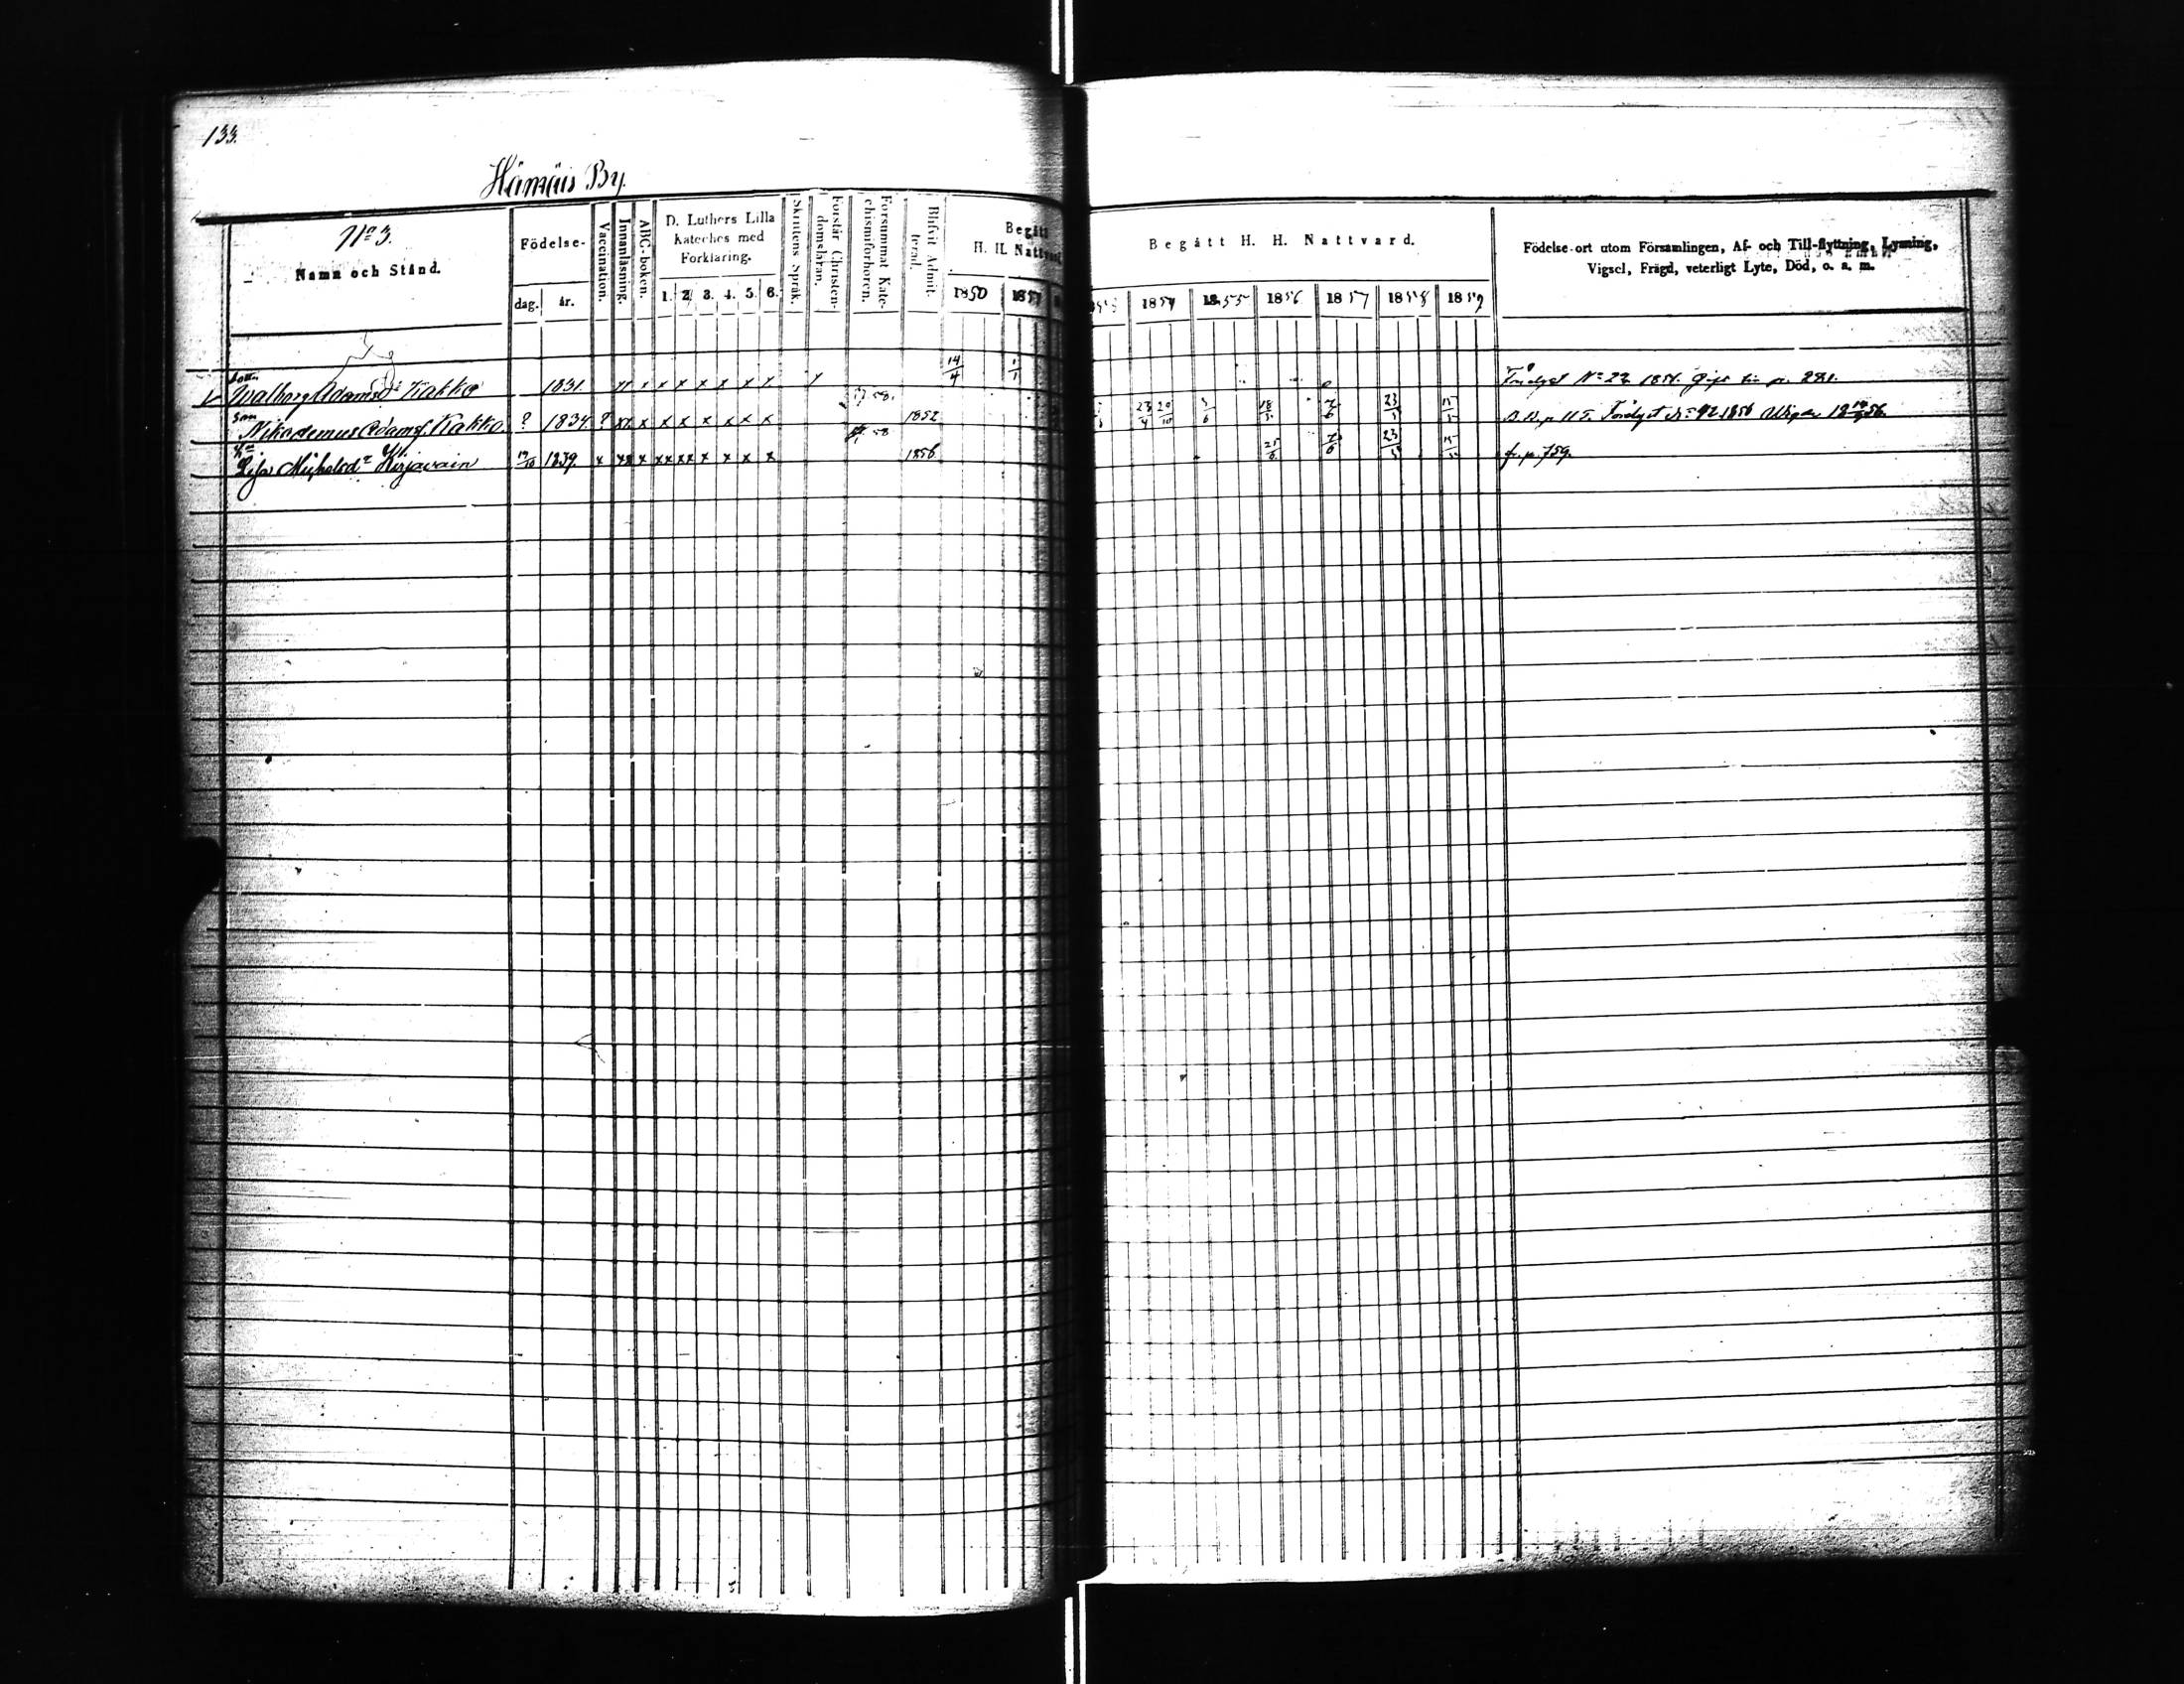 133.
Hämäis By.
No 3.
Namn och Stånd.
Födelse-
dag. år.
Vaccination.
Innanläsning.
ABC-boken.
D. Luthers Lilla
Kateches med
Förklaring.
1. 2. 3. 4. 5. 6.
Skriftens Språk.
Förstår Christen-
domsläran.
Försummat Kate-
chismiförhören.
Blifvit Admit-
terad.
Begått
H. H. Nattvard
1850 1851
Begått H. H. Nattvard.
1854 1855 1856 1857 1858 1859
Födelse-ort utom Församlingen, Af- och Till-flyttning, Lysning,
Vigsel, Frägd, veterligt Lyte, Död, o. s. m.
Walborg Adamsdr Kakko 1831. xx x x x x x x x 14/4 1/1 No 22 1851. Gift p. 281.
Son
Nikodemus Adamsf. Kakko ? 1834 ? xx x x x x x x x 1852 23/4 20/10 3/6 18/5 7/6 23/5 No 42 1856
Hu
Lisa Michelsdr Kirjavain 17/10 1839. x xx x xx xx x x x x 58 1856 25/6 7/6 23/5 fr. p. 759.